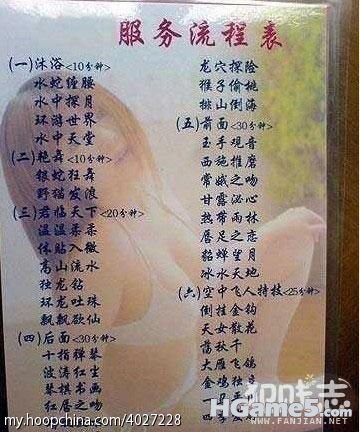 服务流程表
(一)沐浴<10分钟>
水蛇缠腰
水中探月
环游世界
水中天堂
(二)艳舞<10分钟>
银蛇狂舞
野猫发浪
(三)君临天下<20分钟>
温温柔柔
体贴入微
高山流水
独龙钻
环龙吐珠
飘飘欲仙
(四)后面<30分钟>
十指弹琴
波涛红生
琴棋书画
红唇之吻
龙穴探险
猴子偷桃
排山倒海
(五)前面<30分钟>
玉手观音
西施推磨
常娥之吻
甘露泌心
热带雨林
唇足之恋
貂蝉望月
冰水天地
(六)空中飞人特技<25分钟>
倒挂金钩
天女散花
荡秋千
大雁飞鸽
金鸡独
my.hoopchina.com/4027228
HGames.com
WWW.FANJIAN.NET